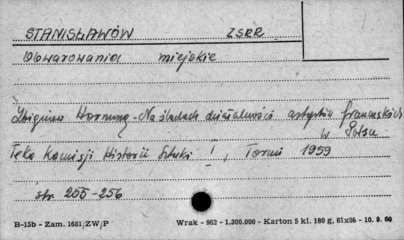 STANISŁAWÓW ZSRR
Obwarowania miejskie
Zbigniew Hornung - Na śladach działalności artystów francuskich
w Polsce
Teka Komisji Historii Sztuki I, Toruń 1959
str. 255-256
B-15b - Zam. 1681/ZW/P Wrak - 962 - 1.300.000 - Karton 5 kl. 180 g, 61x86 - 10. 9. 60